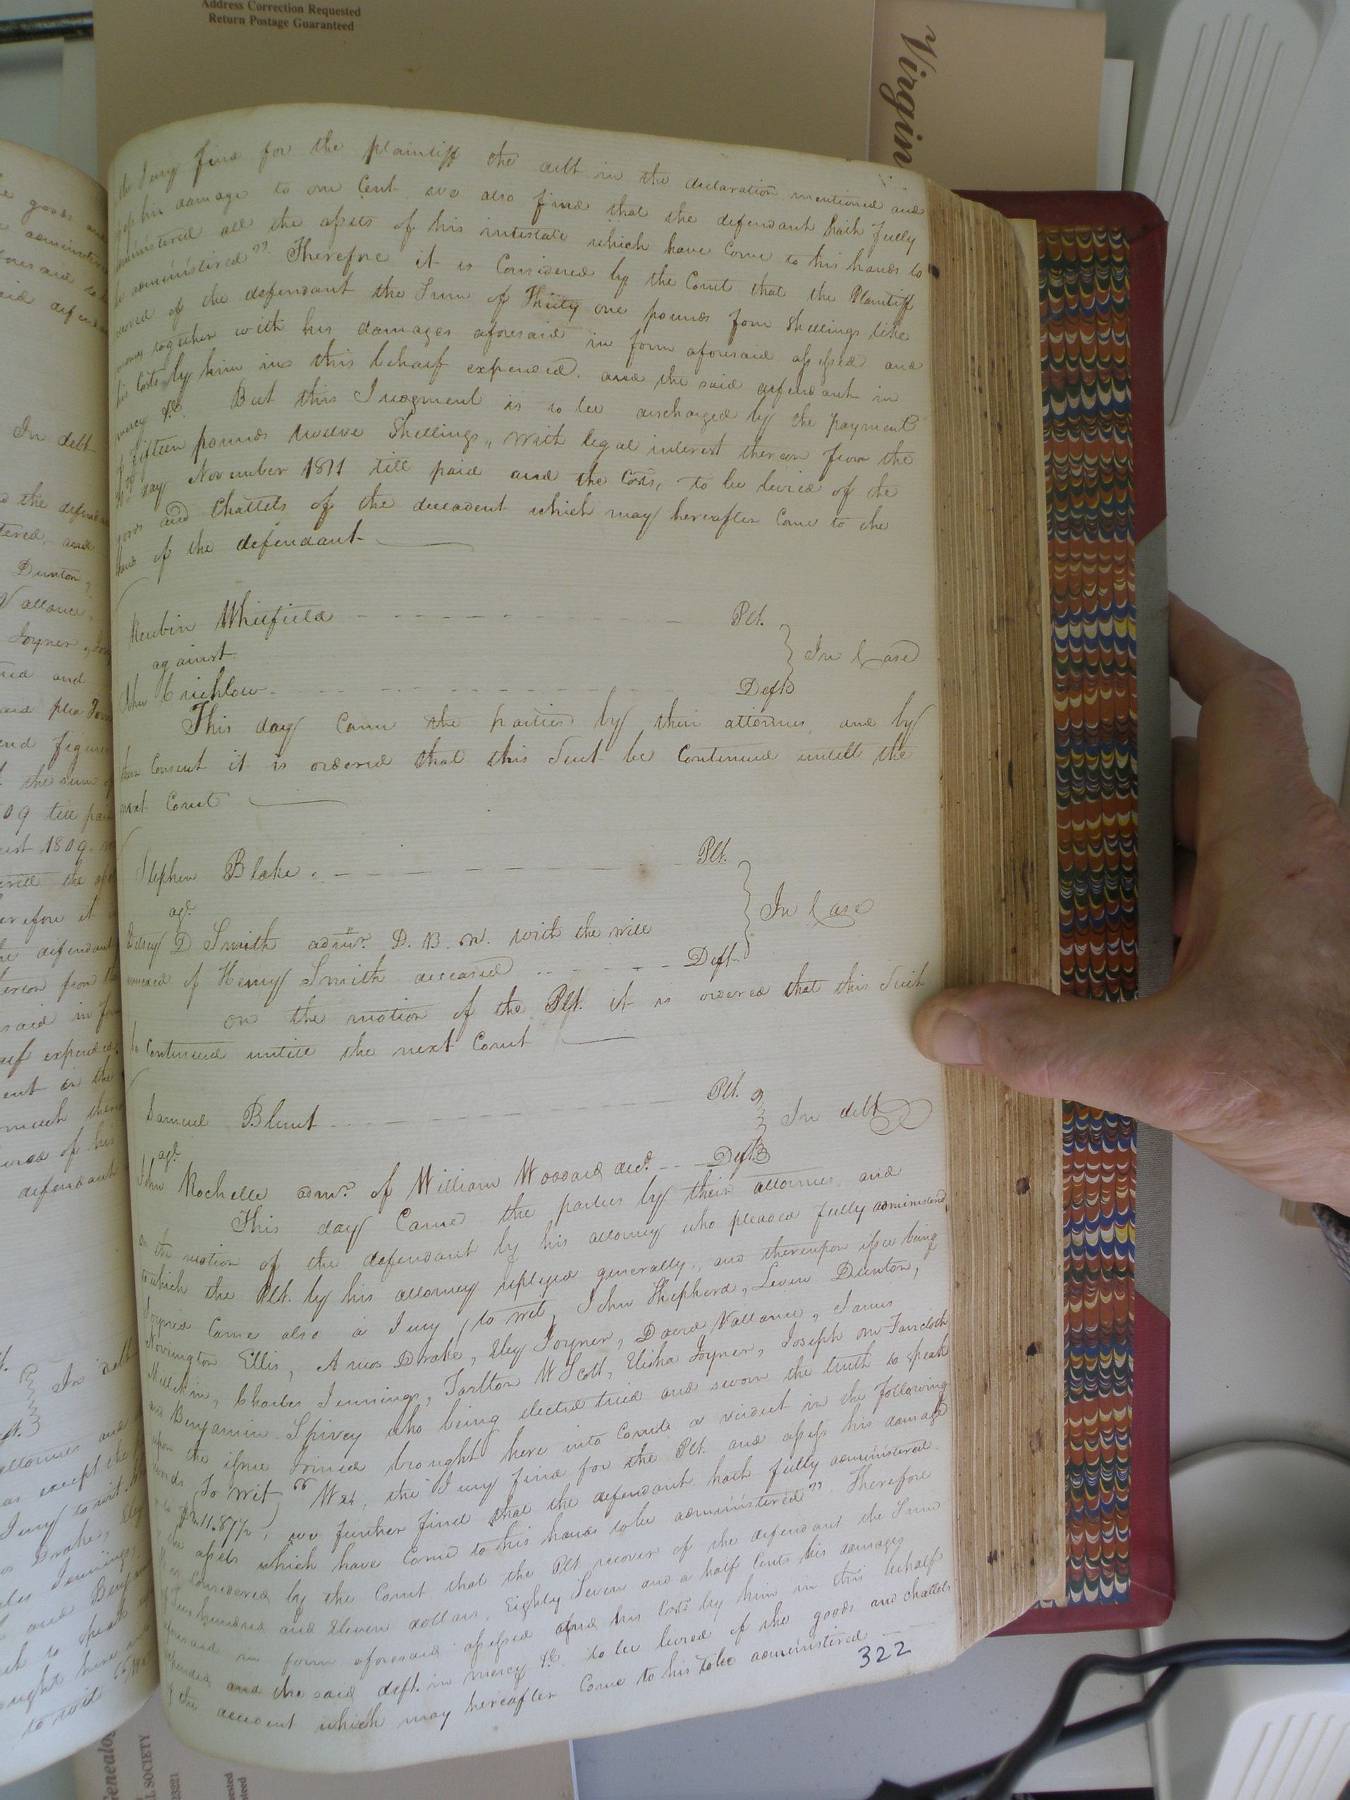 Address Correction Requested
Return Postage Guaranteed
Virgin
the Jury find for the plaintiff the debt in the declaration mentioned and
assess his damage to one Cent. we also find that the defendant hath fully
administered all the assets of his intestate which have Come to his hands to
be administired" Therefore it is Considered by the Court that the Plaintiff
recover of the defendant the Sum of Thirty one pounds four Shillings like
money together with his damages aforesaid in form aforesaid assessed and
his Costs by him in this behalf expended. and the said defendant in
mercy &c. But this Judgment is to be discharged by the payment
of fifteen pounds twelve Shillings, with legal interest thereon from the
day November 1811 till paid and the Costs, to be levied of the
goods and Chattels of the decedent which may hereafter Come to the
hands of the defendant
Reubin Whitfield Plt.
against In Case
John Crichlow Deft
This day Came the parties by their attornies and by
their Consent it is ordered that this Suit be Continued untill the
next Court
Stephen Blake Plt.
agt. In Case
D Smith admr. D. B. N. with the will
annexed of Henry Smith deceased Deft.
on the motion of the Plt. it is ordered that this Suit
be Continued untill the next Court
Samuel Blunt Plt.
agt. In debt
John Rochelle admr. of William Woodard decd. Deft
This day Came the parties by their attornies and
on the motion of the defendant by his attorney who pleaded fully administered
to which the Plt. by his attorney replyed generally, and thereupon issue being
Joyned Came also a Jury (to wit, John Shepherd, Levin Dunton,
Norrington Ellis, Amos Drake, Eley Joyner, David Vallance, James
Millikin, Charles Jennings, Tarlton W Scott, Elisha Joyner, Joseph mc Faircloth
and Benjamin Spivey who being elected tried and sworn the truth to speak
upon the issue Joined brought here into Court a verdict in the following
words To wit, "We, the Jury find for the Plt. and assess his damage
to $211.87½, we further find that the defendant hath fully administered
the assets which have Come to his hands to be administired". Therefore
it is Considered by the Court that the Plt recover of the defendant the Sum
of two hundred and Eleven dollars, Eighty Seven and a half Cents his damages
aforesaid in form aforesaid assessed and his Costs by him in this behalf
expended and the said deft. in mercy &c. to be levied of the goods and chattels
of the decedent which may hereafter Come to his to be administired
322
the goods and
administer
aforesaid to be
said defendant
In debt
to the defendant
Dunton,
Vallance,
Joyner,
and
and figure
the sum of
1809 till paid
1809.
Therefore it
the defendant
thereon from the
said in form
expended
defendant
In debt
attornies and
except the
Jury to wit
Drake, Eley
Jennings,
and Benj
to speak
brought here
to wit
Genealog
L SOCIETY
23221